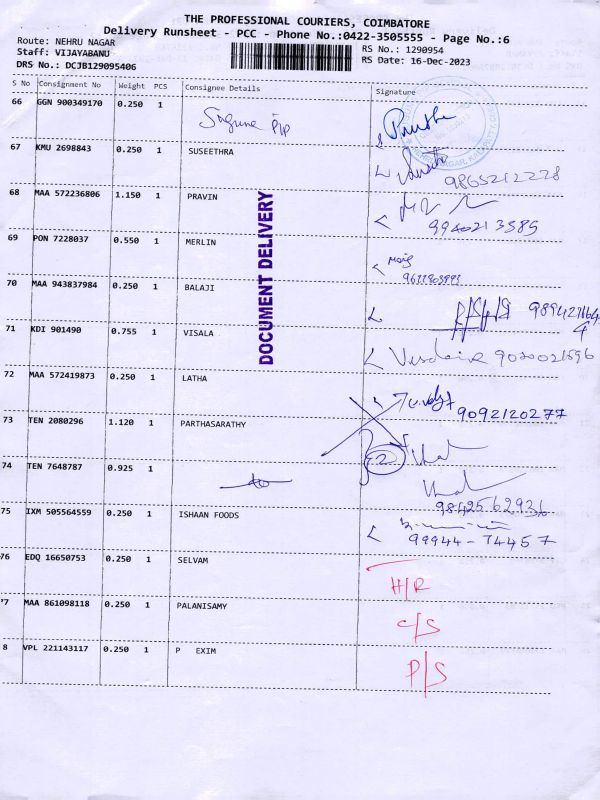 THE PROFESSIONAL COURIERS, COIMBATORE
Delivery Runsheet - PCC - Phone No.:0422-3505555 - Page No.:6
Route: NEHRU NAGAR
Staff: VIJAYABANU
DRS No.: DCJB129095406
RS No.: 1290954
RS Date: 16-Dec-2023
S No Consignment No Weight PCS Consignee Details Signature
66 GGN 900349170 0.250 1
67 KMU 2698843 0.250 1 SUSEETHRA
9865212228
68 MAA 572236806 1.150 1 PRAVIN
9940213585
69 PON 7228037 0.550 1 MERLIN
70 MAA 943837984 0.250 1 BALAJI
71 KDI 901490 0.755 1 VISALA
9020021596
72 MAA 572419873 0.250 1 LATHA
9092120277
73 TEN 2080296 1.120 1 PARTHASARATHY
74 TEN 7648787 0.925 1
9842562936
75 IXM 505564559 0.250 1 ISHAAN FOODS
99944-74457
76 EDQ 16650753 0.250 1 SELVAM H/R
77 MAA 861098118 0.250 1 PALANISAMY C/S
8 VPL 221143117 0.250 1 P EXIM P/S
DOCUMENT DELIVERY